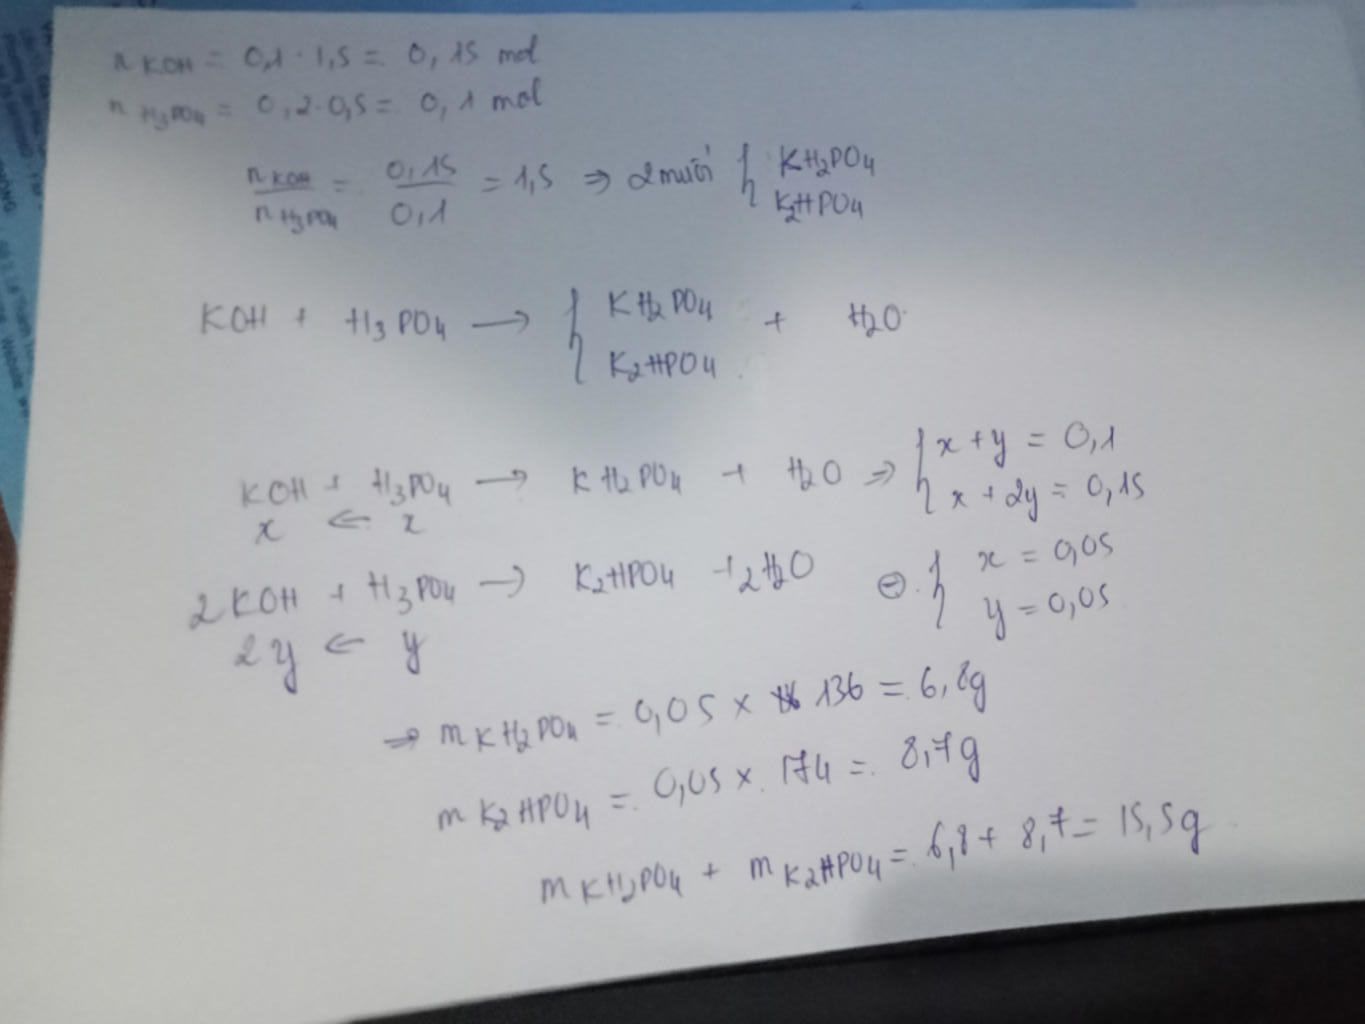 n KOH = 0,1 · 1,5 = 0,15 mol
n H3PO4 = 0,2 · 0,5 = 0,1 mol
n KOH / n H3PO4 = 0,15 / 0,1 = 1,5 ⇒ 2 muối { KH2PO4
K2HPO4
KOH + H3PO4 → { KH2PO4 + H2O
K2HPO4
KOH + H3PO4 → KH2PO4 + H2O ⇒ { x + y = 0,1
x ← x
x + 2y = 0,15
2KOH + H3PO4 → K2HPO4 + 2H2O ⊖ { x = 0,05
2y ← y
y = 0,05
⇒ m KH2PO4 = 0,05 x 136 = 6,8g
m K2HPO4 = 0,05 x 174 = 8,7g
m KH2PO4 + m K2HPO4 = 6,8 + 8,7 = 15,5g